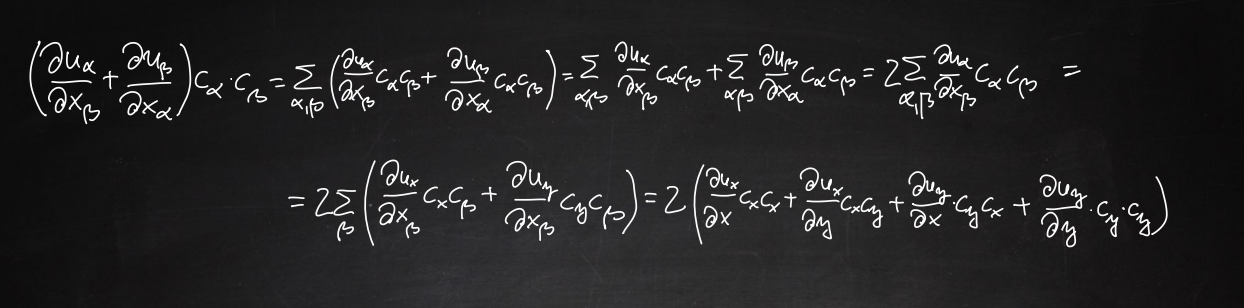 (∂uα/∂xβ + ∂uβ/∂xα) cα · cβ = Σ_{α,β} (∂uα/∂xβ cαcβ + ∂uβ/∂xα cαcβ) = Σ_{α,β} ∂uα/∂xβ cαcβ + Σ_{αβ} ∂uβ/∂xα cαcβ = 2 Σ_{α,β} ∂uα/∂xβ cαcβ =
= 2 Σ_β (∂ux/∂xβ cxcβ + ∂uy/∂xβ cycβ) = 2 (∂ux/∂x cxcx + ∂ux/∂y cxcy + ∂uy/∂x · cycx + ∂uy/∂y · cy · cy)